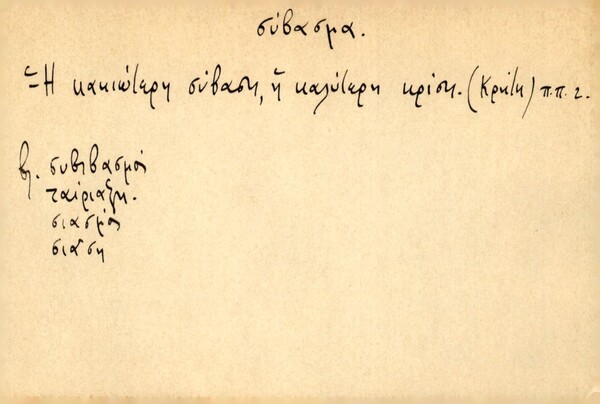 σύβασμα.
– Ἡ κακιώτερη σύβαση, ἡ καλύτερη κρίση. (Κρήτη) π.π. 2.
βλ. συβιβασμός
ταίριαξη.
σιασμός
σιάση